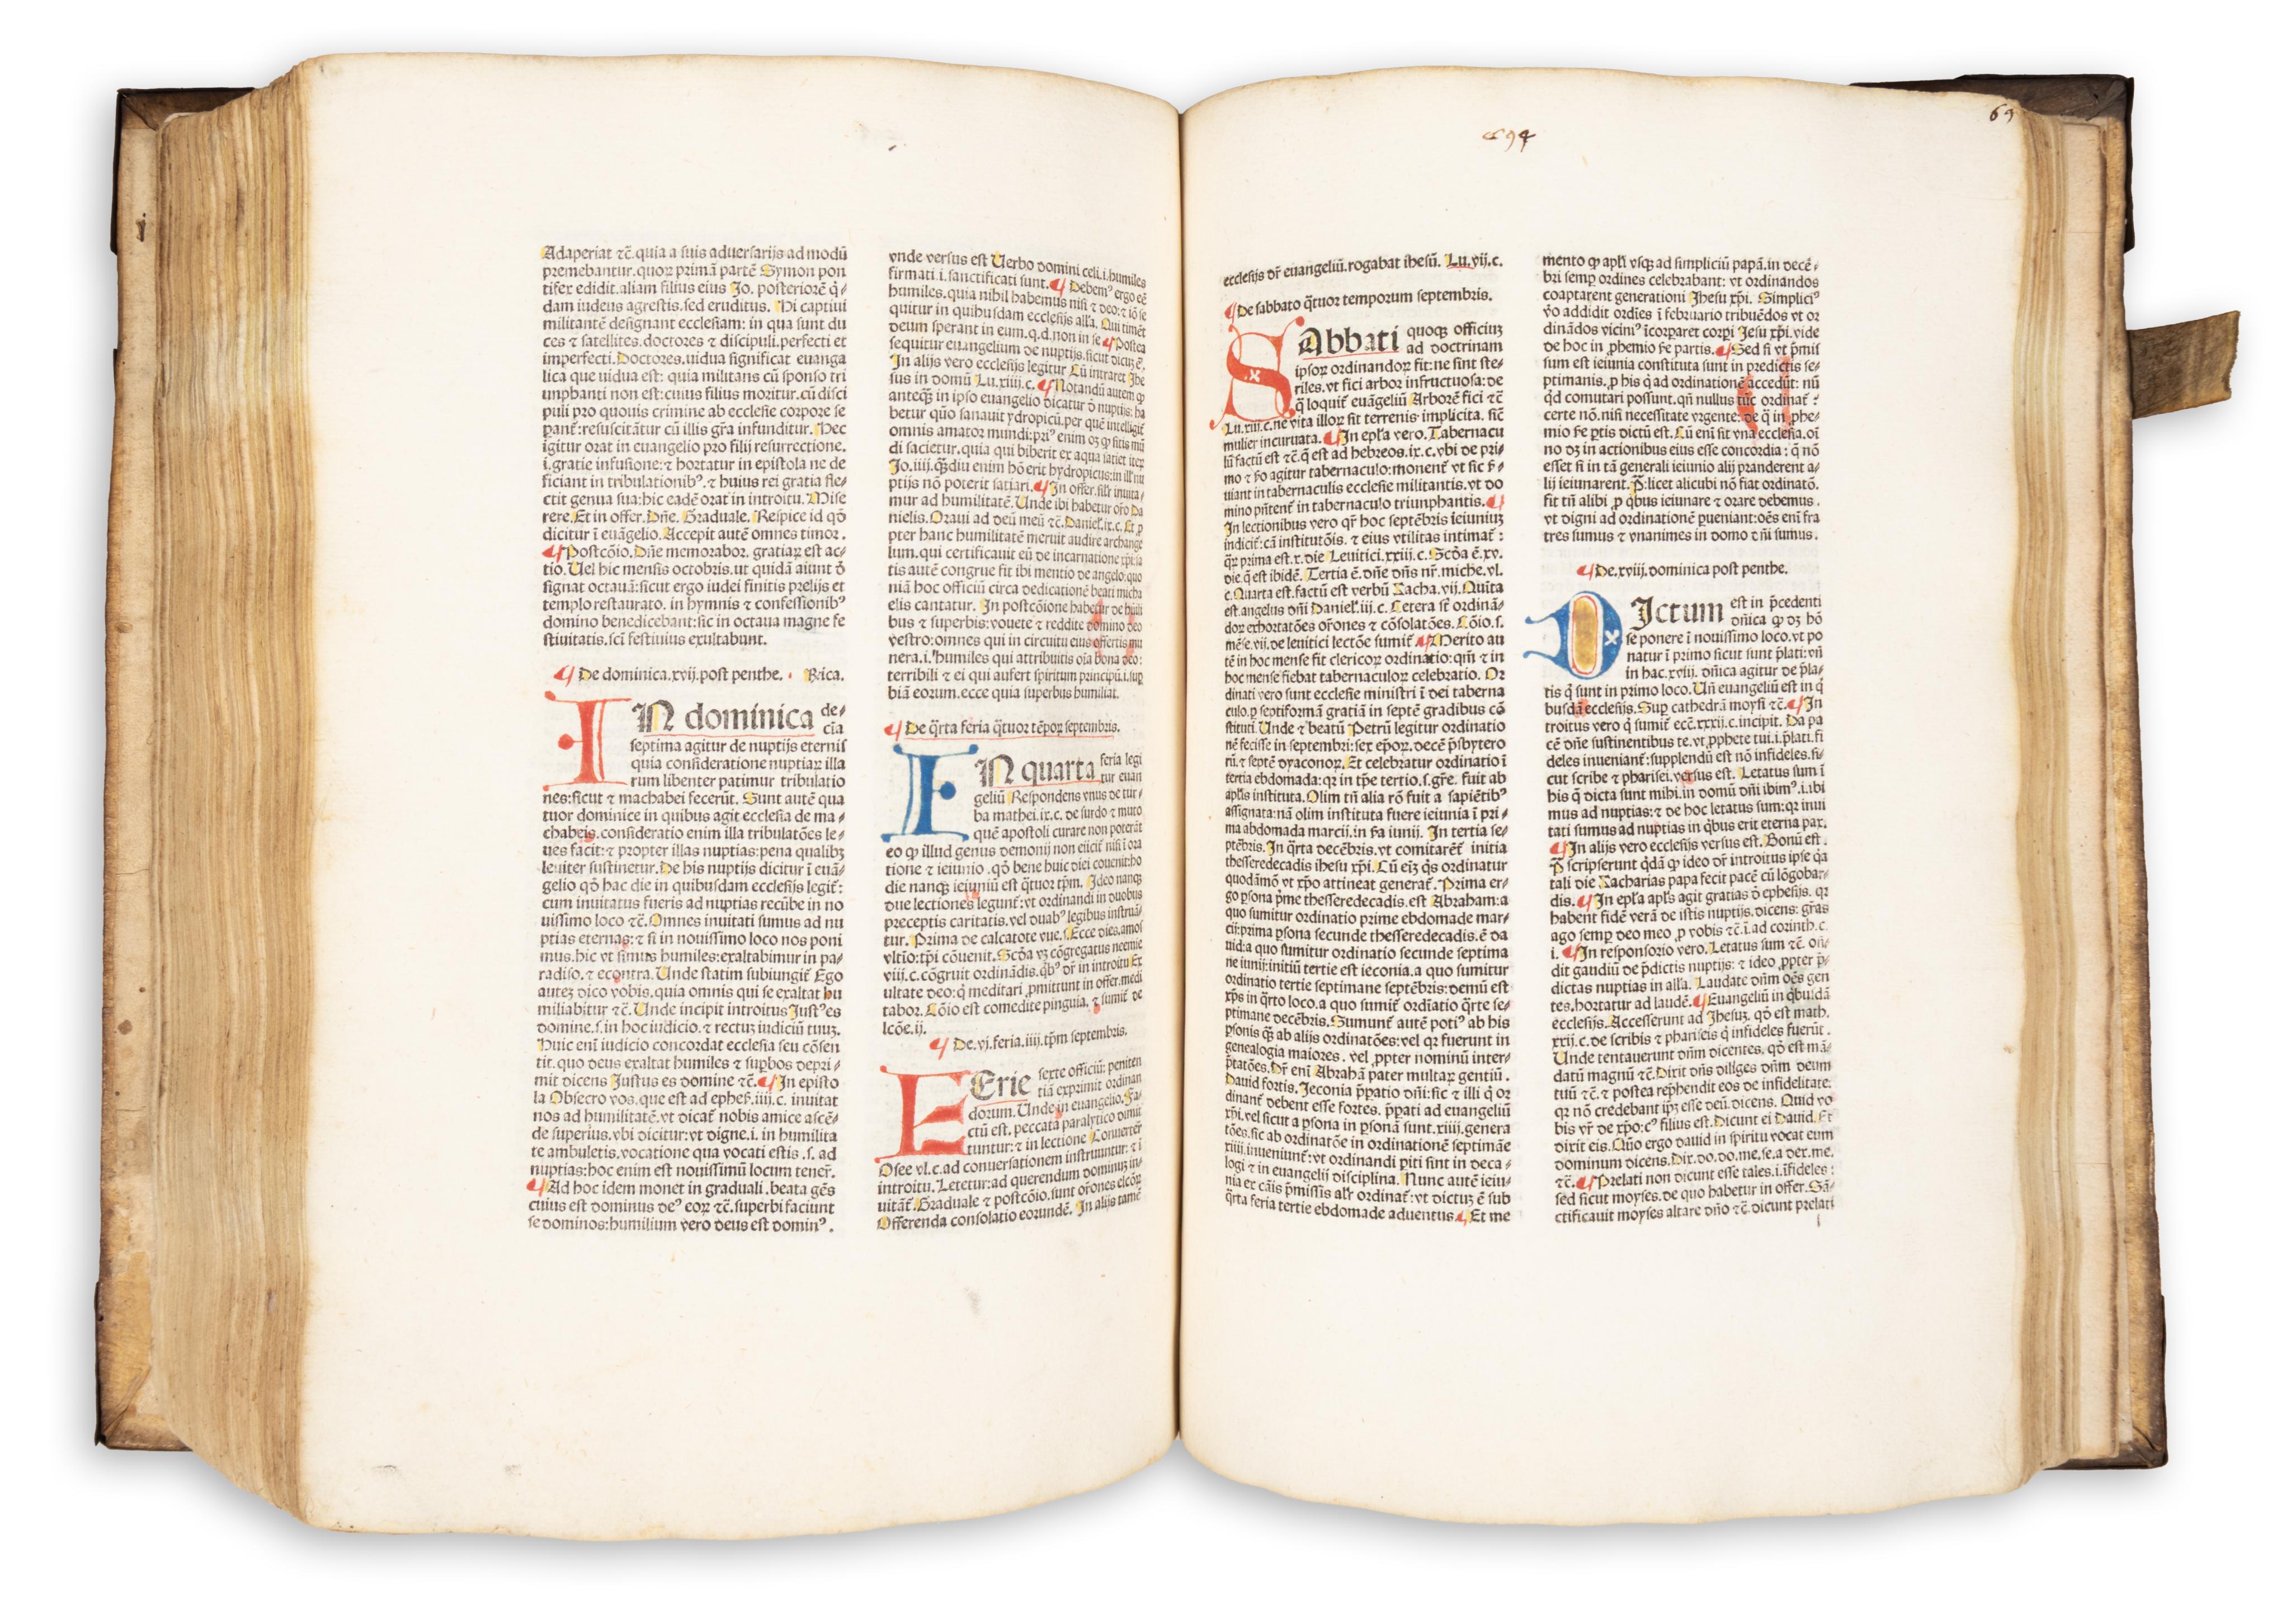 Adaperiat ⁊c̄. quia a suis adversarijs ad modū
premebantur. quoꝝ primā partē Symon pon
tifex edidit. aliam filius eius Jo. posteriorē q̄-
dam iudeus agrestis. sed eruditus. Hi captiui
militantē designant ecclesiam: in qua sunt du
ces ⁊ satellites. doctores ⁊ discipuli. perfecti et
imperfecti. Doctores. uidua significat euange
lica que uidua est: quia militans cū sponso tri
umphanti non est: cuius filius moritur. cū disci
puli pro quouis crimine ab ecclesie corpore se
panť: resuscitātur cū illis gr̄a infunditur. Hec
igitur orat in euangelio pro filij resurrectione.
.i. gratie infusione: ⁊ hortatur in epistola ne de
ficiant in tribulationibꝰ. ⁊ huius rei gratia fle-
ctit genua sua: hic eadē orat in introitu. Mise
rere. Et in offer. Dn̄e. Graduale. Respice id qō
dicitur ī euāgelio. Accepit autē omnes timor.
¶ Postcōio. Dn̄e memorabor. gratiaꝝ est ac-
tio. Uel hic mensis octobris. ut quidā aiunt ō
signat octauā: sicut ergo iudei finitis prelijs et
templo restaurato. in hymnis ⁊ confessionibꝰ
domino benedicebant: sic in octaua magne fe
stiuitatis. sc̄i festiuius exultabunt.
¶ De dominica. xvij. post penthe. Rica.
IN dominica de-
cīa
septima agitur de nuptijs eternis
quia consideratione nuptiaꝝ illa
rum libenter patimur tribulatio
nes: sicut ⁊ machabei fecerūt. Sunt autē qua
tuor dominice in quibus agit ecclesia de ma-
chabeis. consideratio enim illa tribulatōes le-
ues facit: ⁊ propter illas nuptias: pena qualibꝫ
leuiter sustinetur. De his nuptijs dicitur ī euā-
gelio qō hac die in quibusdam ecclesijs legiť:
cum inuitatus fueris ad nuptias recūbe in no
uissimo loco ⁊c̄. Omnes inuitati sumus ad nu
ptias eternas: ⁊ si in nouissimo loco nos poni
mus. hic vt simus humiles: exaltabimur in pa-
radiso. ⁊ econtra. Unde statim subiungiť Ego
autez dico vobis. quia omnis qui se exaltat hu
miliabitur ⁊c̄. Unde incipit introitus Justꝰ es
domine. s. in hoc iudicio. ⁊ rectuꝫ iudiciū tuuꝫ.
Huic enī iudicio concordat ecclesia seu cōsen
tit. quo deus exaltat humiles ⁊ suꝑbos depri-
mit dicens Justus es domine ⁊c̄. ¶ In episto
la Obsecro vos. que est ad ephes. iiij. c. inuitat
nos ad humilitatē. vt dicať nobis amice ascē-
de superius. vbi dicitur: vt digne. i. in humilita
te ambuletis. vocatione qua vocati estis. s. ad
nuptias: hoc enim est nouissimū locum teneř.
¶ Ad hoc idem monet in graduali. beata gēs
cuius est dominus deꝰ eoꝝ ⁊c̄. superbi faciunt
se dominos: humilium vero deus est dominꝰ.
vnde versus est Uerbo domini celi. i. humiles
firmati. i. sanctificati sunt. ¶ Debemꝰ ergo eē
humiles. quia nihil habemus nisi ⁊ deo: ⁊ iō se
quitur in quibusdam ecclesijs all'a. Qui timēt
deum sperant in eum. q. d. non in se ¶ Postea
sequitur euangelium de nuptijs. sicut dictuꝫ ē.
In alijs vero ecclesijs legitur Cū intraret Jhe
sus in domū Lu. xiiij. c. ¶ Notandū autem qꝫ
anteqꝫ in ipso euangelio dicatur ō nuptijs: ha
betur quō sanauit ydropicū. per quē intelligiť
omnis amator mundi: priꝰ enim oꝫ qꝫ sitis mū
di sacietur. quia qui biberit ex aqua satiet iteꝝ
Jo. iiij. qꝫdiu enim hō erit hydropicus: in ill' nu
ptijs nō poterit satiari. ¶ In offer. sil'r inuita-
mur ad humilitatē. Unde ibi habetur or̄o Da
nielis. Oraui ad deū meū ⁊c̄. Daniel. ix. c. Et ꝓ
pter hanc humilitatē meruit audire archange
lum. qui certificauit eū de incarnatione xp̄i: la
tis autē congrue fit ibi mentio de angelo: quo
niā hoc officiū circa dedicationē beati micha
elis cantatur. In postcōione habetur de hūili
bus ⁊ superbis: vouete ⁊ reddite domino deo
vestro: omnes qui in circuitu eius offertis mu
nera. i. humiles qui attribuitis oīa bona deo:
terribili ⁊ ei qui aufert spiritum principū. i. sup
biā eorum. ecce quia superbus humiliat.
¶ De q̄rta feria q̄tuor tēpoꝝ septembris.
IN quarta feria legi
tur euan
geliū Respondens vnus de tur-
ba mathei. ix. c. de surdo ⁊ muto
quē apostoli curare non poterāt
eo qꝫ illud genus demonij non eiiciť nisi ī ora
tione ⁊ ieiunio. qō bene huic diei cōuenit: ho
die nanqꝫ ieiuniū est q̄tuor tꝑm. Ideo nanqꝫ
due lectiones legunť: vt ordinandi in duobus
preceptis caritatis. vel duabꝰ legibus instruā-
tur. Prima de calcatote vue. s. Ecce dies. amos
vltīo: tp̄i cōuenit. Scōa vꝫ cōgregatus neemie
viii. c. cōgruit ordinādis. q̄bꝰ dr̄ in introitu Ex
ultate deo: q̄ meditari ꝓmittunt in offer. medi
tabor. Cōio est comedite pinguia. ⁊ sumiť de
lcōe. ij.
¶ De. vj. feria. iiij. tꝑm septembris.
FErie sexte officiū: peniten
tiā exprimit ordinan
dorum. Unde in euangelio. Fa-
ctū est. peccata paralytico dimit
tuntur: ⁊ in lectione Conuerteř
Osee vl. c. ad conuersationem instruuntur: ⁊ ī
introitu. Letetur: ad querendum dominuꝫ in-
uitāť. Graduale ⁊ postcōio. sunt or̄ones elcōꝝ
Offerenda consolatio eorundē. In alijs tamē
694
69
ecclesijs dr̄ euangeliū. rogabat ihesū. Lu. vij. c.
¶ De sabbato q̄tuor temporum septembris.
SAbbati quoqꝫ officiuꝫ
ad doctrinam
ipsoꝝ ordinandoꝝ fit: ne sint ste-
riles. vt fici arbor infructuosa: de
q̄ loquiť euāgeliū Arborē fici ⁊c̄
Lu. xiii. c. ne vita illoꝝ sit terrenis implicita. sic̄
mulier incuruata. ¶ In epl'a vero. Tabernacu
lū factū est ⁊c̄. q̄ est ad hebreos. ix. c. vbi de pri-
mo ⁊ sō agitur tabernaculo: monenť vt sic s-
uiant in tabernaculis ecclesie militantis. vt do
mino pn̄tenť in tabernaculo triumphantis. ¶
In lectionibus vero qꝛ hoc septēbris ieiuniuꝫ
indiciť: cā institutōis. ⁊ eius vtilitas intimať:
q̄ꝝ prima est. x. die Leuitici. xxiii. c. Scōa ē. xv.
die. q̄ est ibidē. Tertia ē. dn̄e dn̄s nr̄. miche. vl.
c. Quarta est. factū est verbū Zacha. vij. Quīta
est. angelus dn̄i Daniel'. iii. c. Cetera sť ordinā-
doꝝ exhortatōes or̄ones ⁊ cōsolatōes. Cōio. s.
mēse. vii. de leuitici lectōe sumiť ¶ Merito au
tē in hoc mense fit clericoꝝ ordinatio: qm̄ ⁊ in
hoc mense fiebat tabernaculoꝝ celebratio. Or
dinati vero sunt ecclesie ministri ī dei taberna
culo. ꝑ septiformā gratiā in septē gradibus cō
stituti. Unde ⁊ beatū Petrū legitur ordinatio
nē fecisse in septembri: sex ep̄oꝝ. decē p̄sbytero
rū. ⁊ septē dyaconoꝝ. Et celebratur ordinatio ī
tertia ebdomada: qꝛ in tp̄e tertio. s. gr̄e. fuit ab
apl̄is instituta. Olim tn̄ alia rō fuit a sapiētibꝰ
assignata: nā olim instituta fuere ieiunia ī pri-
ma abdomada marcii. in sa iunij. In tertia se-
ptēbris. In q̄rta decēbris. vt comitareť initia
thesseredecadis ihesu xp̄i. Cū eiꝫ q̄s ordinatur
quodāmō vt xp̄o attineat generať. Prima er-
go ꝑsona p̄me thesseredecadis. est Abraham: a
quo sumitur ordinatio prime ebdomade mar-
cij: prima ꝑsona secunde thesseredecadis. ē da
uid: a quo sumitur ordinatio secunde septima
ne iunij: initiū tertie est ieconia. a quo sumitur
ordinatio tertie septimane septēbris: demū est
xp̄s in q̄rto loco. a quo sumiť ordīatio q̄rte se-
ptimane decēbris. Sumunť autē potiꝰ ab his
ꝑsonis qꝫ ab alijs ordinatōes: vel qꝛ fuerunt in
genealogia maiores. vel ꝓpter nominū inter-
p̄tatōes. Dr̄ enī Abrahā pater multaꝝ gentiū.
Dauid fortis. Jeconia p̄patio dn̄i: sic ⁊ illi q̄ or
dinanť debent esse fortes. p̄pati ad euangeliū
xp̄i. vel sicut a ꝑsona in ꝑsonā sunt. xiiij. genera
tōes. sic ab ordinatōe in ordinationē septimāe
xiiij. inueniunť: vt ordinandi ꝑiti sint in deca-
logi ⁊ in euangelij disciplina. Nunc autē ieiu-
nia ex cāis p̄missis al'r ordinať: vt dictuꝫ ē sub
q̄rta feria tertie ebdomade aduentus ¶ Et me
mento qꝫ apl'i vsqꝫ ad simpliciū papā. in decē-
bri semꝑ ordines celebrabant: vt ordinandos
coaptarent generationi Jhesu xp̄i. Simpliciꝰ
v̄o addidit ordīes ī februario tribuēdos vt or
dinādos viciniꝰ īcorparet corpi Jesu xp̄i. vide
de hoc in ꝓhemio se partis. ¶ Sed si vt p̄mis
sum est ieiunia constituta sunt in predictis se-
ptimanis. ꝓ his q̄ ad ordinationē accedūt: nū
qd comutari possunt. qn̄ nullus tūc ordinať:
certe nō. nisi necessitate vrgente: de q̄ in ꝓhe-
mio se ꝑtis dictū est. Cū enī sit vna ecclesia. oī
no oꝫ in actionibus eius esse concordia: q̄ nō
esset si in tā generali ieiunio alij pranderent a-
lij ieiunarent. P̄: licet alicubi nō fiat ordinatō.
fit tn̄ alibi ꝓ q̄bus ieiunare ⁊ orare debemus.
vt digni ad ordinationē ꝑueniant: oēs enī fra
tres sumus ⁊ vnanimes in domo dn̄i sumus.
¶ De. xviij. dominica post penthe.
DIctum est in p̄cedenti
dn̄ica qꝫ oꝫ hō
se ponere ī nouissimo loco. vt po
natur ī primo sicut sunt p̄lati: vn̄
in hac. xviij. dn̄ica agitur de p̄la-
tis q̄ sunt in primo loco. Un̄ euangeliū est in q̄
busdā ecclesijs. Suꝑ cathedrā moysi ⁊c̄. ¶ In
troitus vero q̄ sumiť ecc̄. xxxij. c. incipit. Da pa
cē dn̄e sustinentibus te. vt ꝓphete tui. i. p̄lati. fi
deles inueniant: supplendū est nō infideles. si-
cut scribe ⁊ pharisei. versus est. Letatus sum ī
his q̄ dicta sunt mihi. in domū dn̄i ibimꝰ. i. ibi
mus ad nuptias: ⁊ de hoc letatus sum: qꝛ inui
tati sumus ad nuptias in q̄bus erit eterna pax.
¶ In alijs vero ecclesijs versus est. Bonū est.
P̄ scripserunt q̄dā qꝫ ideo dr̄ introitus ipse q̄a
tali die Zacharias papa fecit pacē cū lōgobar-
dis. ¶ In epl'a apl's agit gratias ō ephesijs. qꝛ
habent fidē verā de istis nuptijs. dicens: gr̄as
ago semꝑ deo meo ꝓ vobis ⁊c̄. i. ad corinth. c.
i. ¶ In responsorio vero. Letatus sum ⁊c̄. on̄-
dit gaudiū de p̄dictis nuptijs: ⁊ ideo ꝓpter p̄-
dictas nuptias in all'a. Laudate dn̄m oēs gen
tes. hortatur ad laudē. ¶ Euangeliū in q̄busdā
ecclesijs. Accesserunt ad Jhesuꝫ. qō est math.
xxij. c. de scribis ⁊ phariseis q̄ infideles fuerūt.
Unde tentauerunt dn̄m dicentes. qō est mā-
datū magnū ⁊c̄. Dixit dn̄s diliges dn̄m deum
tuū ⁊c̄. ⁊ postea rep̄hendit eos de infidelitate.
qꝛ nō credebant ip̄ꝫ esse deū. dicens. Quid vo
bis vr̄ de xp̄o: cꝰ filius est. Dicunt ei Dauid. Et
dixit eis. Quō ergo dauid in spiritu vocat eum
dominum dicens. Dix. do. do. me. se. a dex. me.
⁊c̄. ¶ Prelati non dicunt esse tales. i. īfideles:
sed sicut moyses. de quo habetur in offer. Sā-
ctificauit moyses altare dn̄o ⁊c̄ dicunt prelati